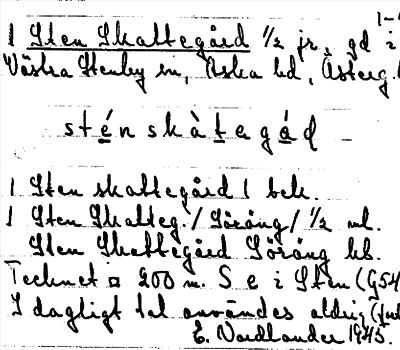 1-
1 Sten Skattegård 1/2 jr, gd i
Västra Stenby sn, Aska hd, Österg.
sténskàtegád
1 Sten skattegård 1 bek.
1 Sten Skatteg./Söräng/ 1/2 ml.
Sten Skattegård Söräng kb.
Tecknet ¤ 200 m. S e i Sten (GS4
I dagligt tal användes aldrig
E. Nordlander 1945.